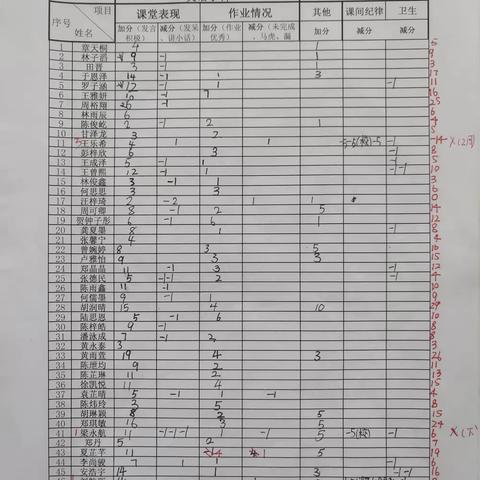 项目
序号
姓名
课堂表现 作业情况 其他 课间纪律 卫生
加分（发言积极） 减分（发呆、讲小话） 加分（作业优秀） 减分（未完成、马虎、漏 加分 减分 减分
1 章天桐 4 1 5
2 林子滔 9 -1 1
3 田晋 3 -1 1
4 于恩泽 14 -1 1 3 17
5 罗子涵 12 -1 1 -1 11
6 王雅妍 10 -1 7 16
7 周裕翔 26 -1 25
8 林雨辰 6 6
9 陈俊屹 2 -1 2 1 4
10 甘泽龙 3 2 5
11 王乐希 4 1 1 -1 -14
12 彭梓欣 6 3 -1 8
13 王成泽 5 -1 1 -1
14 王曾熙 12 -1 1 -1 -1 10
15 林俊鑫 3 -1 1 3
16 何思思 3 3 6
17 汪梓琦 2 -2 1 1 0
18 周可卿 8 -1 2 5 14
19 贺钟子彤 6 -1 6 1 12
20 龚夏墨 8 1 -1 8
21 张馨宁 4 4
22 曾婉婷 8 3 5
23 卢雅怡 9 3 3 15
24 郑晶晶 11 -1 3 -1 12
25 张德民 5 -1 -1 2 -1 4
26 陈雨鑫 11 -1 10
27 何儒墨 9 -1 1 9
28 胡润晴 15 4 10 29
29 陆思恩 5 -1 6 10
30 陈梓皓 9 -1 8
31 潘泳成 7 -1 2 8
32 黄永泰 3 3
33 黄雨萱 19 4 3 26
34 陈堆均 9 2 11
35 陈芷琳 11 2 13
36 徐凯悦 11 4 15
37 袁芷晴 5 -1 1 -1 4
38 陈炜玲 5 3 8
39 胡琳颖 8 2 5 15
40 郑琪敏 16 3 5 24
41 梁永航 11 -1 -1 -1 1 -1 5 -5(校) -1 6
42 郑丹 5 2 7
43 夏芷芊 11 4 1 5 19
44 李尚毅 7 1 -1 6
45 安浩宇 14 1 3 -1 -1 16